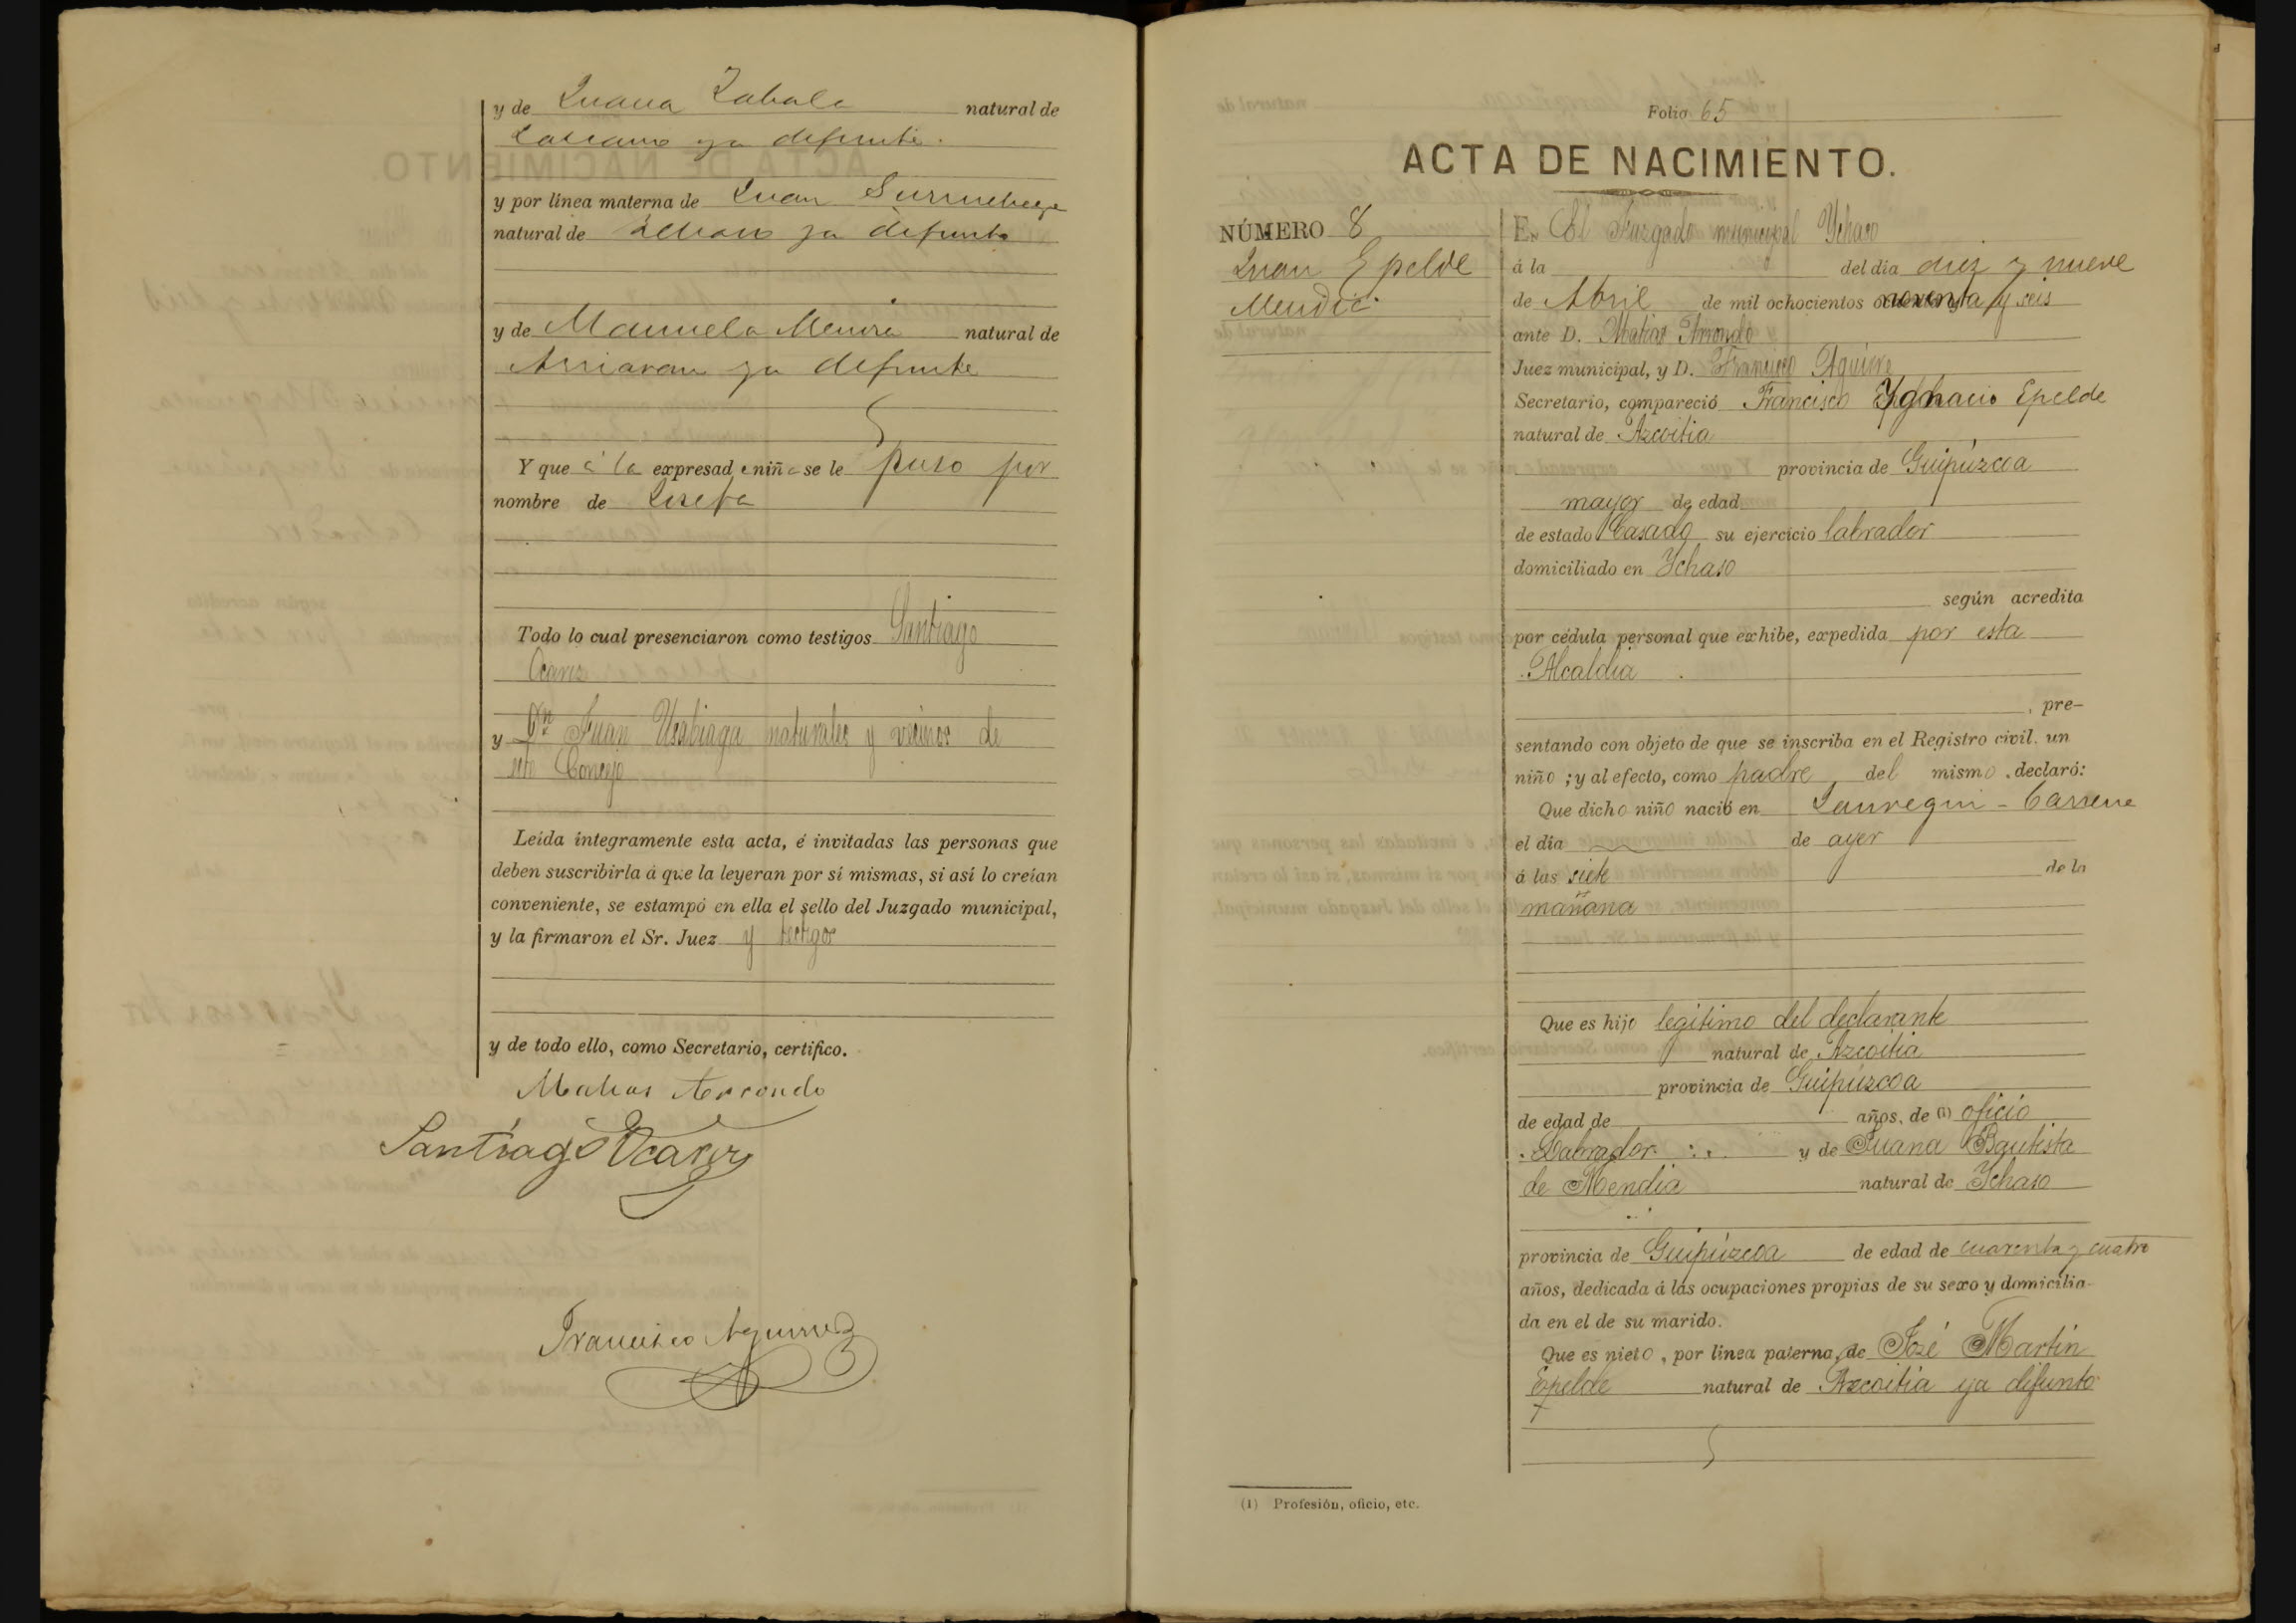 y de Juana Zabala natural de
Lazcano ya difunta.
y por línea materna de Juan
natural de ya difunto
y de Manuela natural de
Arriaran ya difunta
Y que á la expresada niña se le puso por
nombre de Josefa
Todo lo cual presenciaron como testigos Santiago
Ocariz
y Dn Juan Usabiaga naturales y vecinos de
este Concejo
Leída íntegramente esta acta, é invitadas las personas que
deben suscribirla á que la leyeran por sí mismas, si así lo creían
conveniente, se estampó en ella el sello del Juzgado municipal,
y la firmaron el Sr. Juez y testigos
y de todo ello, como Secretario, certifico.
Matias Arrondo
Santiago Ocariz
Francisco Aguirre
Folio 65
ACTA DE NACIMIENTO.
NÚMERO 8
Juan Epelde
Mendia
En El Juzgado municipal Ychaso
á la del dia diez y nueve
de Abril de mil ochocientos noventa y seis
ante D. Matias Arrondo
Juez municipal, y D. Francisco Aguirre
Secretario, compareció Francisco Ygnacio Epelde
natural de Azcoitia
provincia de Guipúzcoa
mayor de edad
de estado Casado su ejercicio labrador
domiciliado en Ychaso
según acredita
por cédula personal que exhibe, expedida por esta
Alcaldia
, pre-
sentando con objeto de que se inscriba en el Registro civil. un
niño ; y al efecto, como padre del mismo . declaró:
Que dicho niño nació en Jauregui - Carrene
el día de ayer
á las siete de la
mañana
Que es hijo legitimo del declarante
natural de Azcoitia
provincia de Guipúzcoa
de edad de años, de (1) oficio
Labrador y de Juana Bautista
de Mendia natural de Ychaso
provincia de Guipúzcoa de edad de cuarenta y cuatro
años, dedicada á las ocupaciones propias de su sexo y domicilia-
da en el de su marido.
Que es nieto , por línea paterna, de José Martin
Epelde natural de Azcoitia ya difunto
(1) Profesión, oficio, etc.